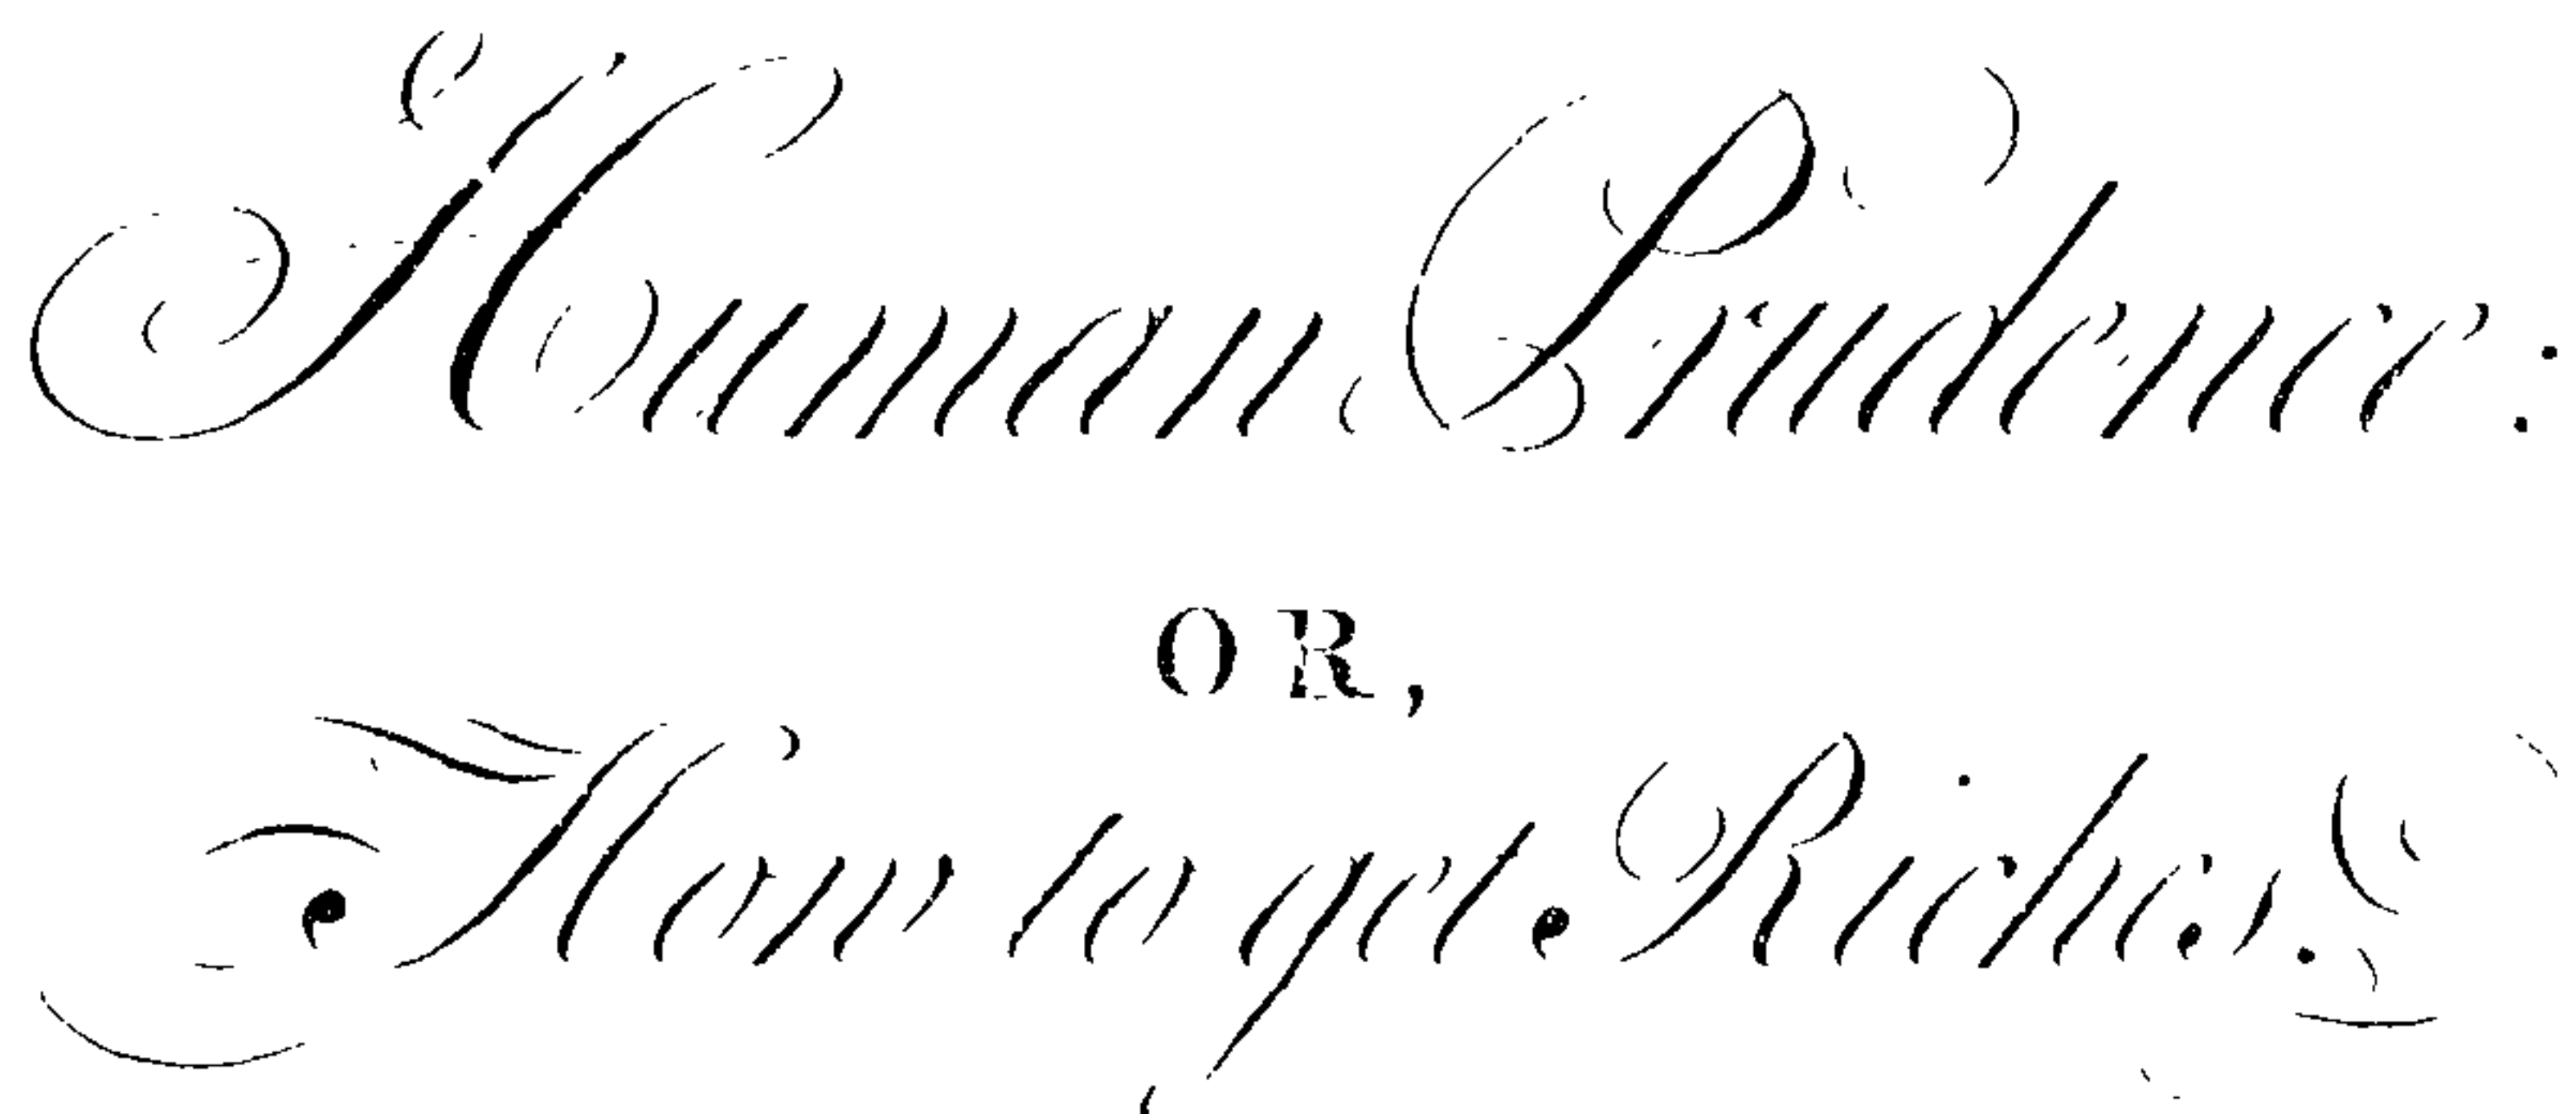 Human Prudence:
OR,
How to get Riches.